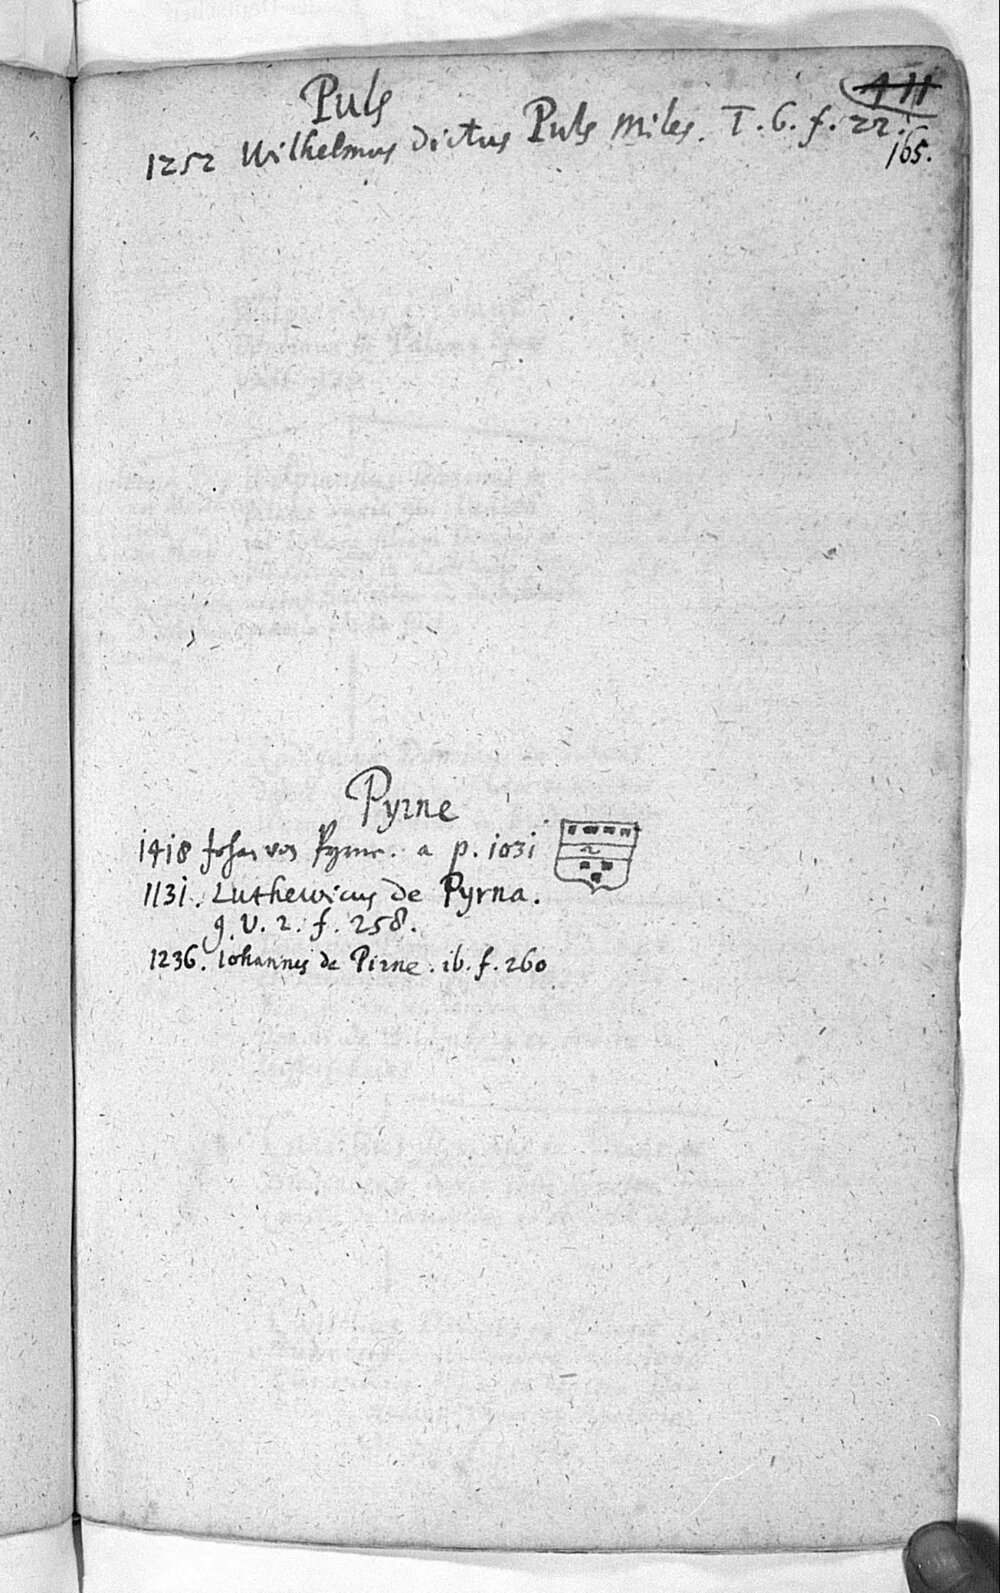 Puls
411
1252 Wilhelmus dictus Puls miles. T. G. f. 22.
165.
Pyrne
1418 Johan von Pyrne. a p. 1031
1131. Luthewicus de Pyrna.
g. V. 2. f. 258.
1236. Iohannes de Pirne. ib. f. 260